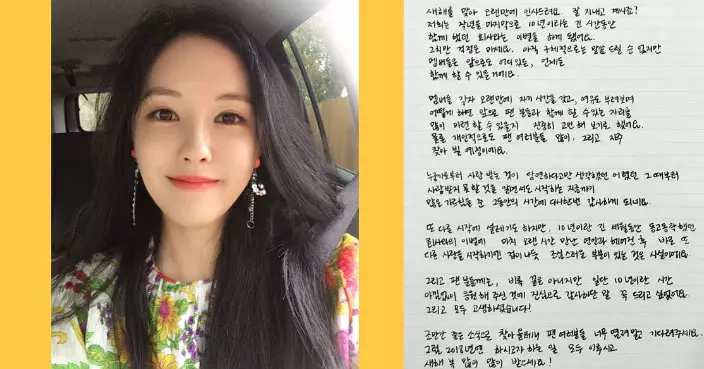 새해를 맞아 오랜만에 인사드려요. 잘 지내고 계셔요?
저희는 작년을 마지막으로 10년이라는 긴 시간동안
함께 했던 회사와는 이별을 하게 됐어요.
그치만 걱정은 마세요. 아직 구체적으로는 말씀 드릴 순 없지만
멤버들은 앞으로도 어디있든, 언제든
함께 할 수 있을거에요.
멤버들 각자 오랜만에 자기 시간을 갖고, 여유도 부려보며
어떻게 하면 앞으로 팬 분들과 함께 할 수 있는 자리를
많이 마련 할 수 있을지 진중히 고민 해 보기로 했어요.
물론 개인적으로도 팬 여러분들 많이, 그리고 자주
찾아 뵐 예정이에요.
누군가로부터 사랑 받는 것이 당연하다고만 생각했던 어렸던 그 때부터
사랑받지 못할 것을 알면서도 시작하는 지금까지
맘을 가득 채운 그동안의 시간에 다시한번 감사하게 되네요.
또 다른 시작에 설레기도 하지만, 10년이란 긴 세월동안 동고동락했던
회사와의 이별에 마치 오랜 시간 만난 연인과 헤어진 후 바로 또
다른 사랑을 시작하기엔 겁이나듯 조심스러운 부분이 있는 것은 사실이에요.
그리고 팬 분들께는, 비록 끝은 아니지만 일단 10년이란 시간
아낌없이 응원해 주신 것에 진심으로 감사하단 말 꼭 드리고 싶었어요.
그리고 모두 고생하셨습니다!
조만간 좋은 소식으로 찾아 올테니 팬 여러분들 너무 염려 말고 기다려주세요.
그럼 2018년엔 하시고자 하는 일 모두 이루시고
새해 복 많이 많이 받으세요!